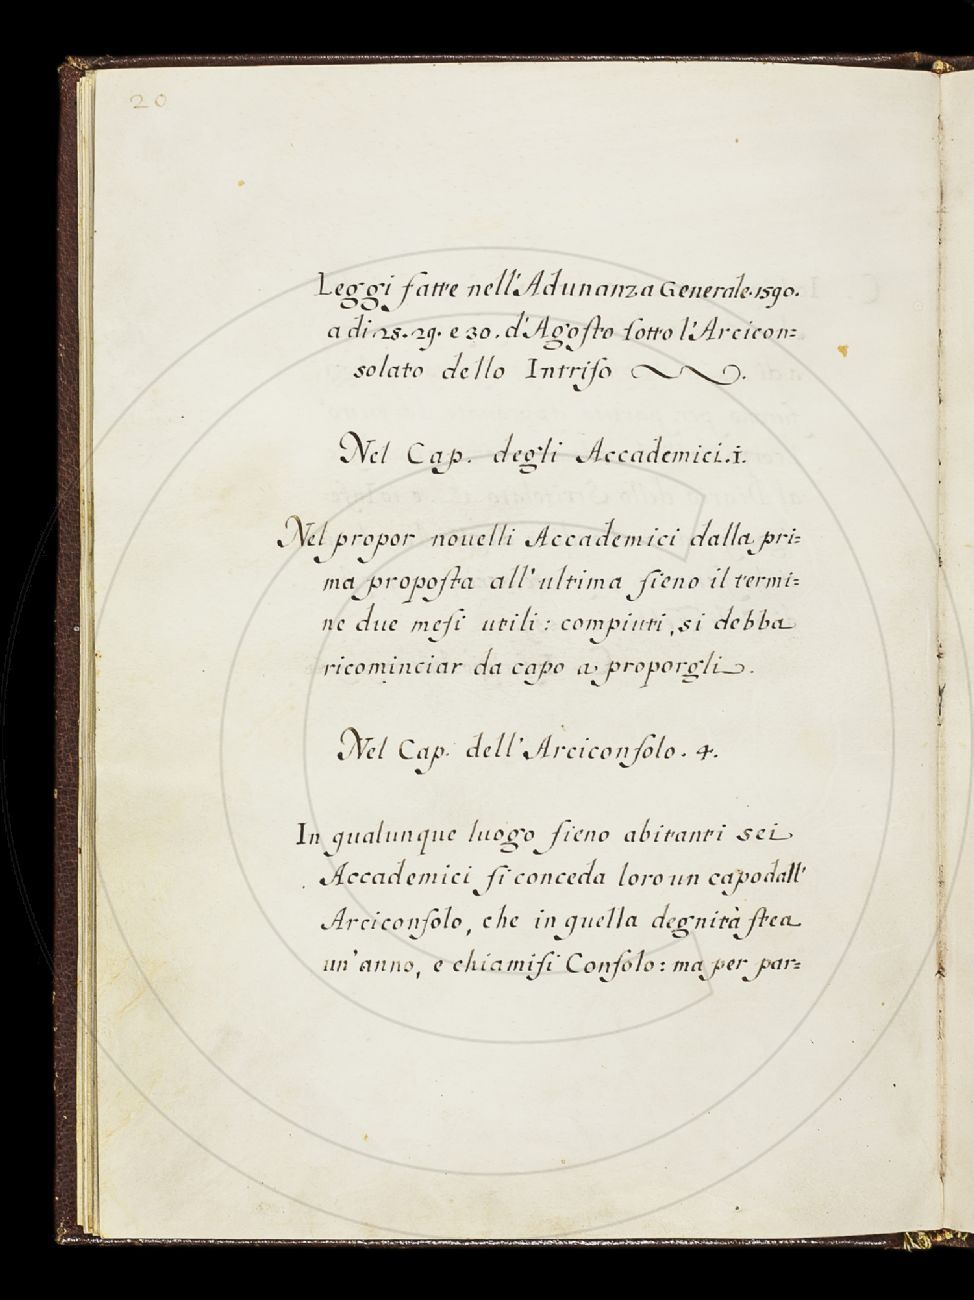 20
Leggi fatte nell'Adunanza Generale. 1590.
a di 28. 29. e 30. d'Agosto sotto l'Arcicon=
solato dello Intriso
Nel Cap. degli Accademici. 1.
Nel propor nouelli Accademici dalla pri=
ma proposta all'ultima sieno il termi=
ne due mesi utili: compiuti, si debba
ricominciar da capo a proporgli.
Nel Cap. dell'Arciconsolo. 4.
In qualunque luogo sieno abitanti sei
Accademici si conceda loro un capo dall'
Arciconsolo, che in quella degnità stea
un'anno, e chiamisi Consolo: ma per par=